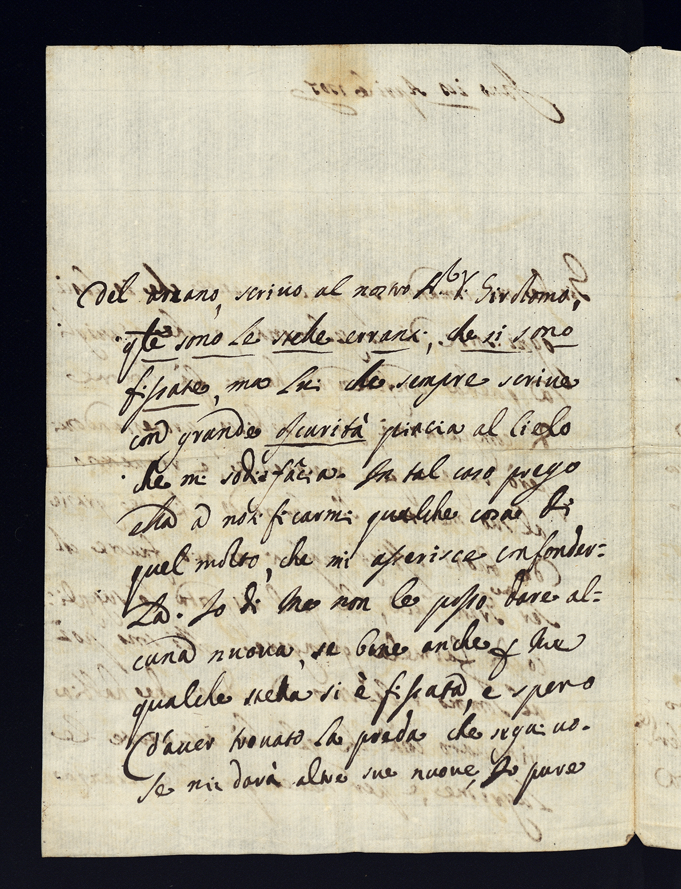 del arcano, scrivo al nostro Girolomo,
qte sono le stelle erranti, che si sono
fissate, ma Lui che sempre scrive
con grande oscurità piacia al Cielo
che mi sodisfacia. In tal caso prego
ella a notificarmi qualche cosa di
quel molto, che mi asserisce confonder=
La. Io di me non le posso dare al=
cuna nuova, se bene anche p me
qualche stella si è fissata, e spero
d'aver trovato la preda che seguivo.
Se mi darà altre sue nuove, Io pure